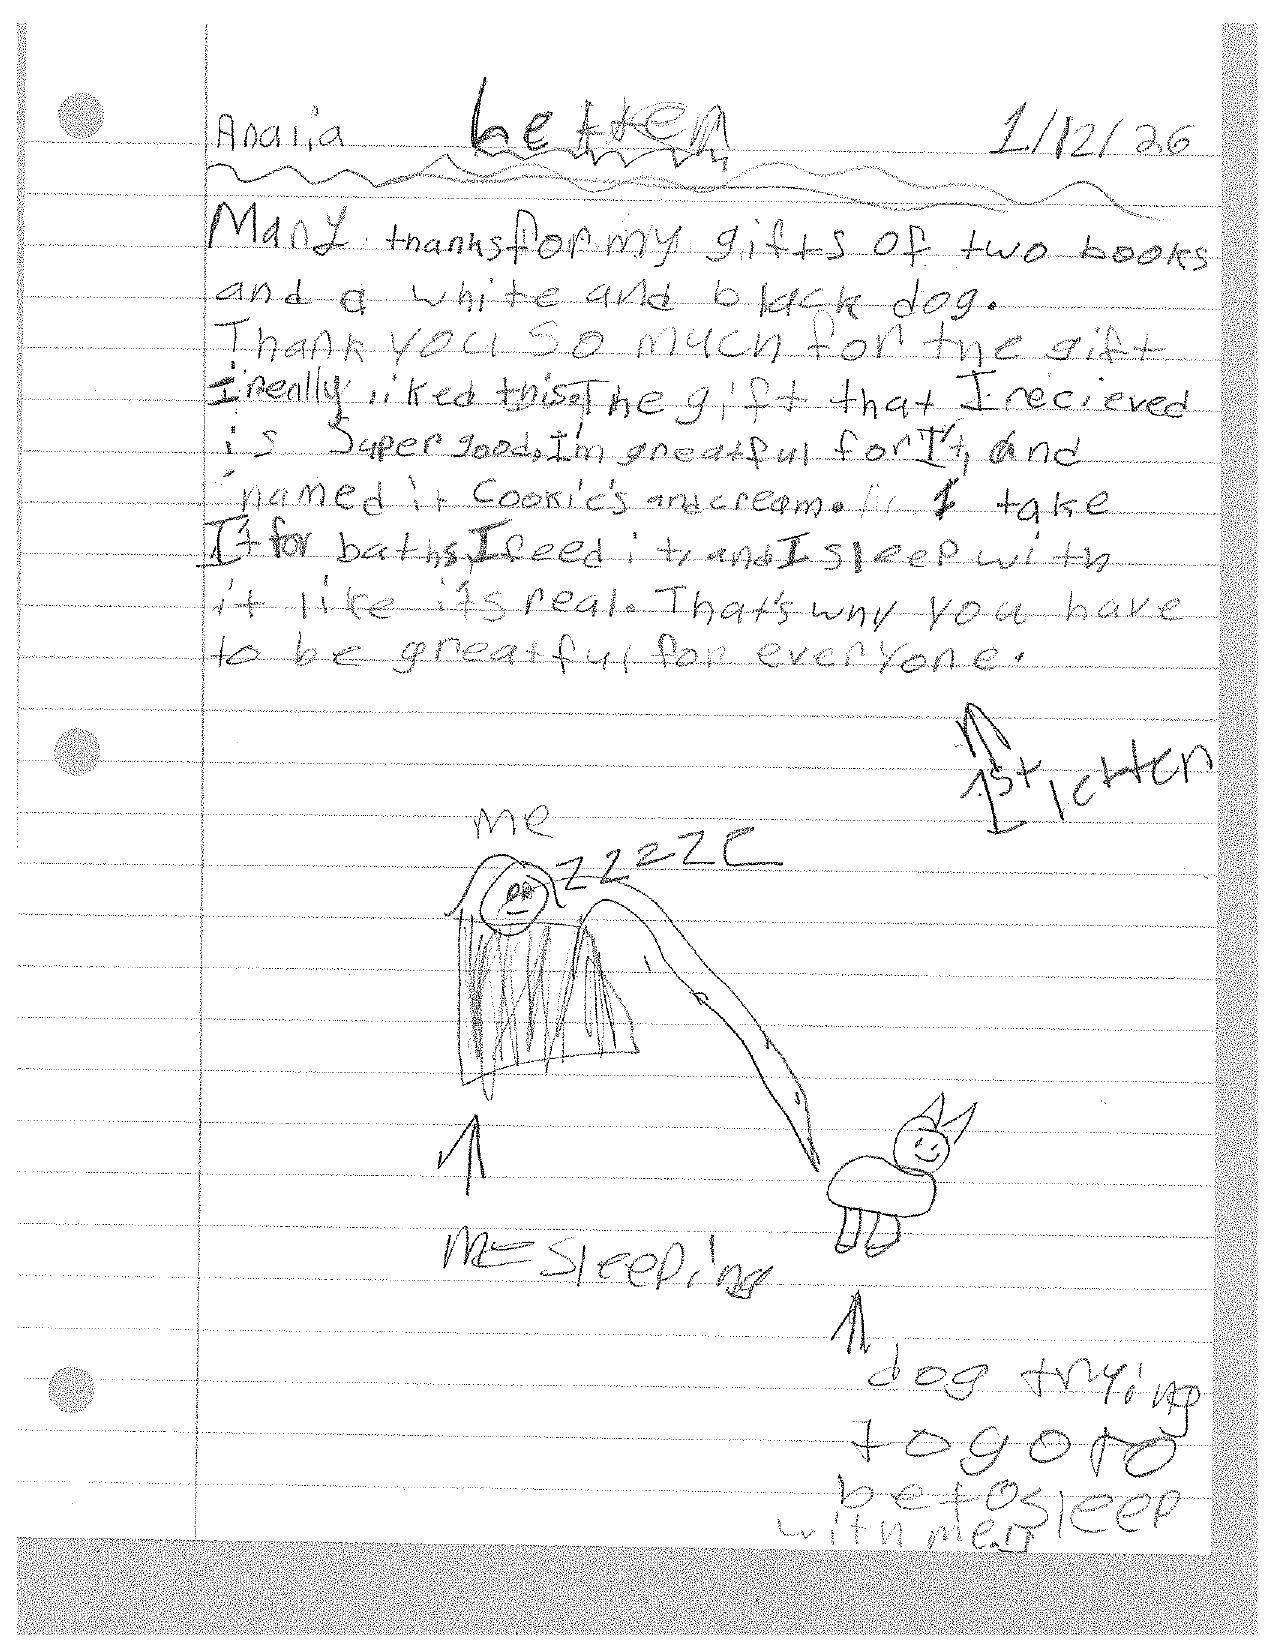 Anaiia letter 1/12/26
Many thanks for my gifts of two books
and a white and black dog.
Thank you so much for the gift
I really liked this. The gift that I recieved
is super good, I'm greatful for It, and
named it Cookie's and cream. I take
It for baths, I feed it, and I sleep with
it like its real. That's why you have
to be greatful for everyone.
1st letter
me
zzzzz
me sleeping
dog trying
to go to
bet to sleep
with me